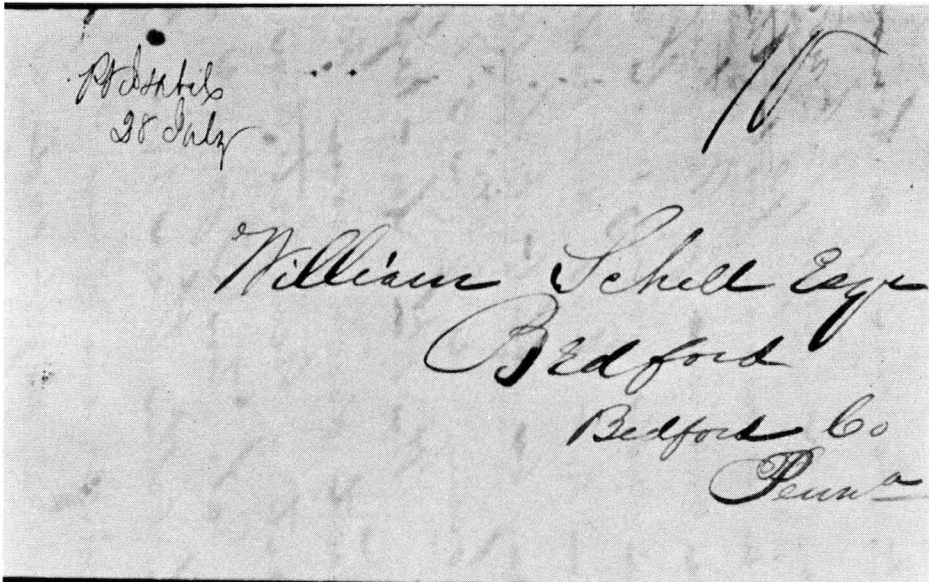 Pt Isabel
28 July
10
William Schell Esqr
Bedford
Bedford Co
Penna